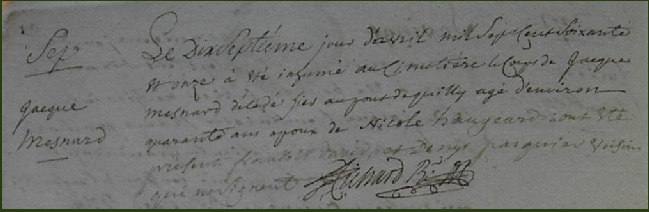 Sep^r
Jacque
Mesnard
Le Dix Septiéme jour d'avril mil Sept Cent Soixante
et onze à été inhumé au Cimetière le Corps de Jacque
mesnard décédé hier au agé d'environ
quarante ans epoux de Nicole haugeard ont été
present et Denys pasquier Voisin
qui ne signent Richard